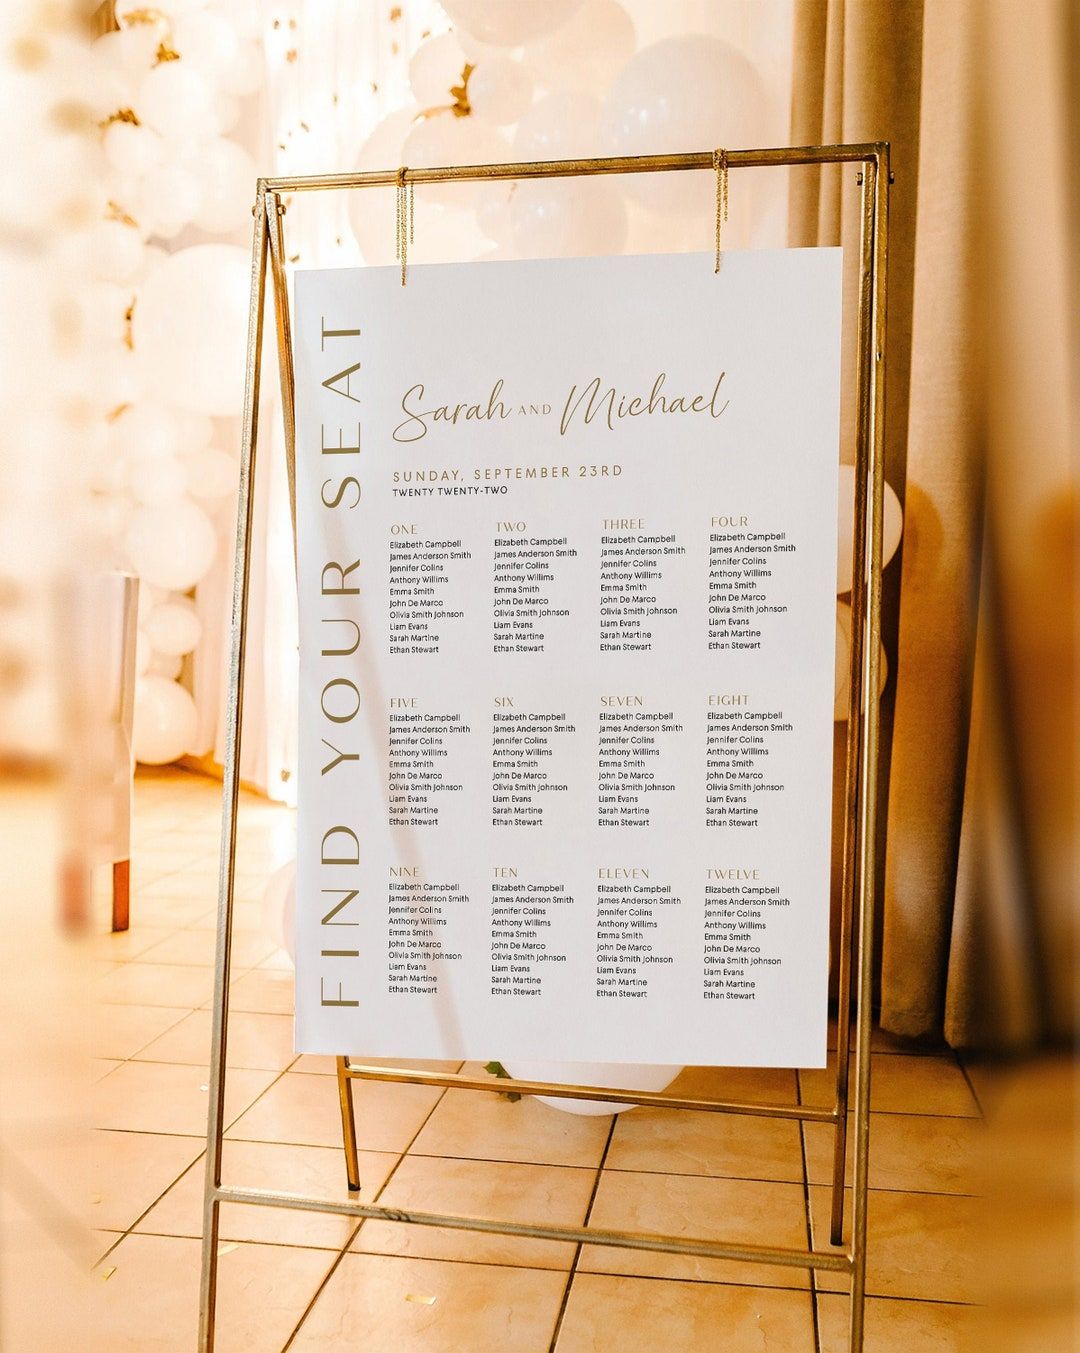 FIND YOUR SEAT
Sarah AND Michael
SUNDAY, SEPTEMBER 23RD
TWENTY TWENTY-TWO
ONE
Elizabeth Campbell
James Anderson Smith
Jennifer Colins
Anthony Willims
Emma Smith
John De Marco
Olivia Smith Johnson
Liam Evans
Sarah Martine
Ethan Stewart
TWO
Elizabeth Campbell
James Anderson Smith
Jennifer Colins
Anthony Willims
Emma Smith
John De Marco
Olivia Smith Johnson
Liam Evans
Sarah Martine
Ethan Stewart
THREE
Elizabeth Campbell
James Anderson Smith
Jennifer Colins
Anthony Willims
Emma Smith
John De Marco
Olivia Smith Johnson
Liam Evans
Sarah Martine
Ethan Stewart
FOUR
Elizabeth Campbell
James Anderson Smith
Jennifer Colins
Anthony Willims
Emma Smith
John De Marco
Olivia Smith Johnson
Liam Evans
Sarah Martine
Ethan Stewart
FIVE
Elizabeth Campbell
James Anderson Smith
Jennifer Colins
Anthony Willims
Emma Smith
John De Marco
Olivia Smith Johnson
Liam Evans
Sarah Martine
Ethan Stewart
SIX
Elizabeth Campbell
James Anderson Smith
Jennifer Colins
Anthony Willims
Emma Smith
John De Marco
Olivia Smith Johnson
Liam Evans
Sarah Martine
Ethan Stewart
SEVEN
Elizabeth Campbell
James Anderson Smith
Jennifer Colins
Anthony Willims
Emma Smith
John De Marco
Olivia Smith Johnson
Liam Evans
Sarah Martine
Ethan Stewart
EIGHT
Elizabeth Campbell
James Anderson Smith
Jennifer Colins
Anthony Willims
Emma Smith
John De Marco
Olivia Smith Johnson
Liam Evans
Sarah Martine
Ethan Stewart
NINE
Elizabeth Campbell
James Anderson Smith
Jennifer Colins
Anthony Willims
Emma Smith
John De Marco
Olivia Smith Johnson
Liam Evans
Sarah Martine
Ethan Stewart
TEN
Elizabeth Campbell
James Anderson Smith
Jennifer Colins
Anthony Willims
Emma Smith
John De Marco
Olivia Smith Johnson
Liam Evans
Sarah Martine
Ethan Stewart
ELEVEN
Elizabeth Campbell
James Anderson Smith
Jennifer Colins
Anthony Willims
Emma Smith
John De Marco
Olivia Smith Johnson
Liam Evans
Sarah Martine
Ethan Stewart
TWELVE
Elizabeth Campbell
James Anderson Smith
Jennifer Colins
Anthony Willims
Emma Smith
John De Marco
Olivia Smith Johnson
Liam Evans
Sarah Martine
Ethan Stewart